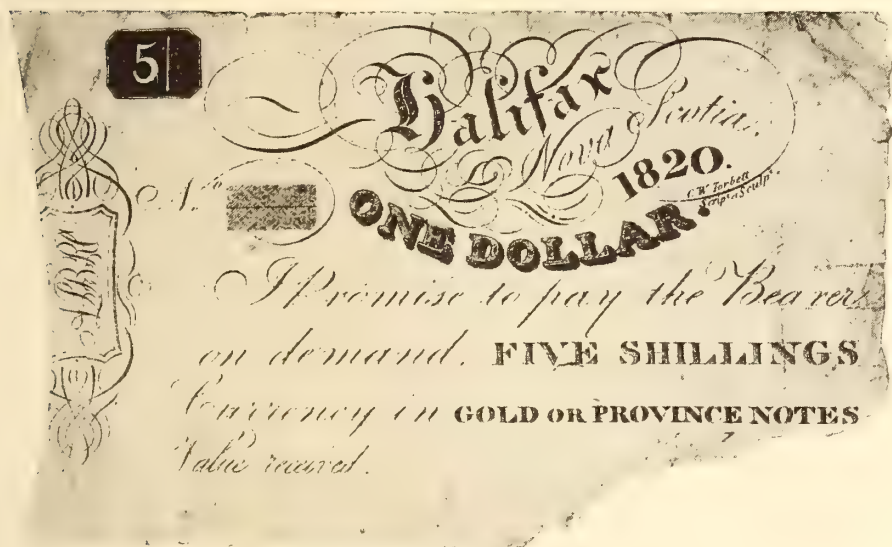 5|
Halifax
Nova Scotia.
1820.
C. W. Torbett
Script. Sculp.t
No.
ONE DOLLAR.
I Promise to pay the Bearer
on demand. FIVE SHILLINGS
Currency in GOLD OR PROVINCE NOTES
Value received.